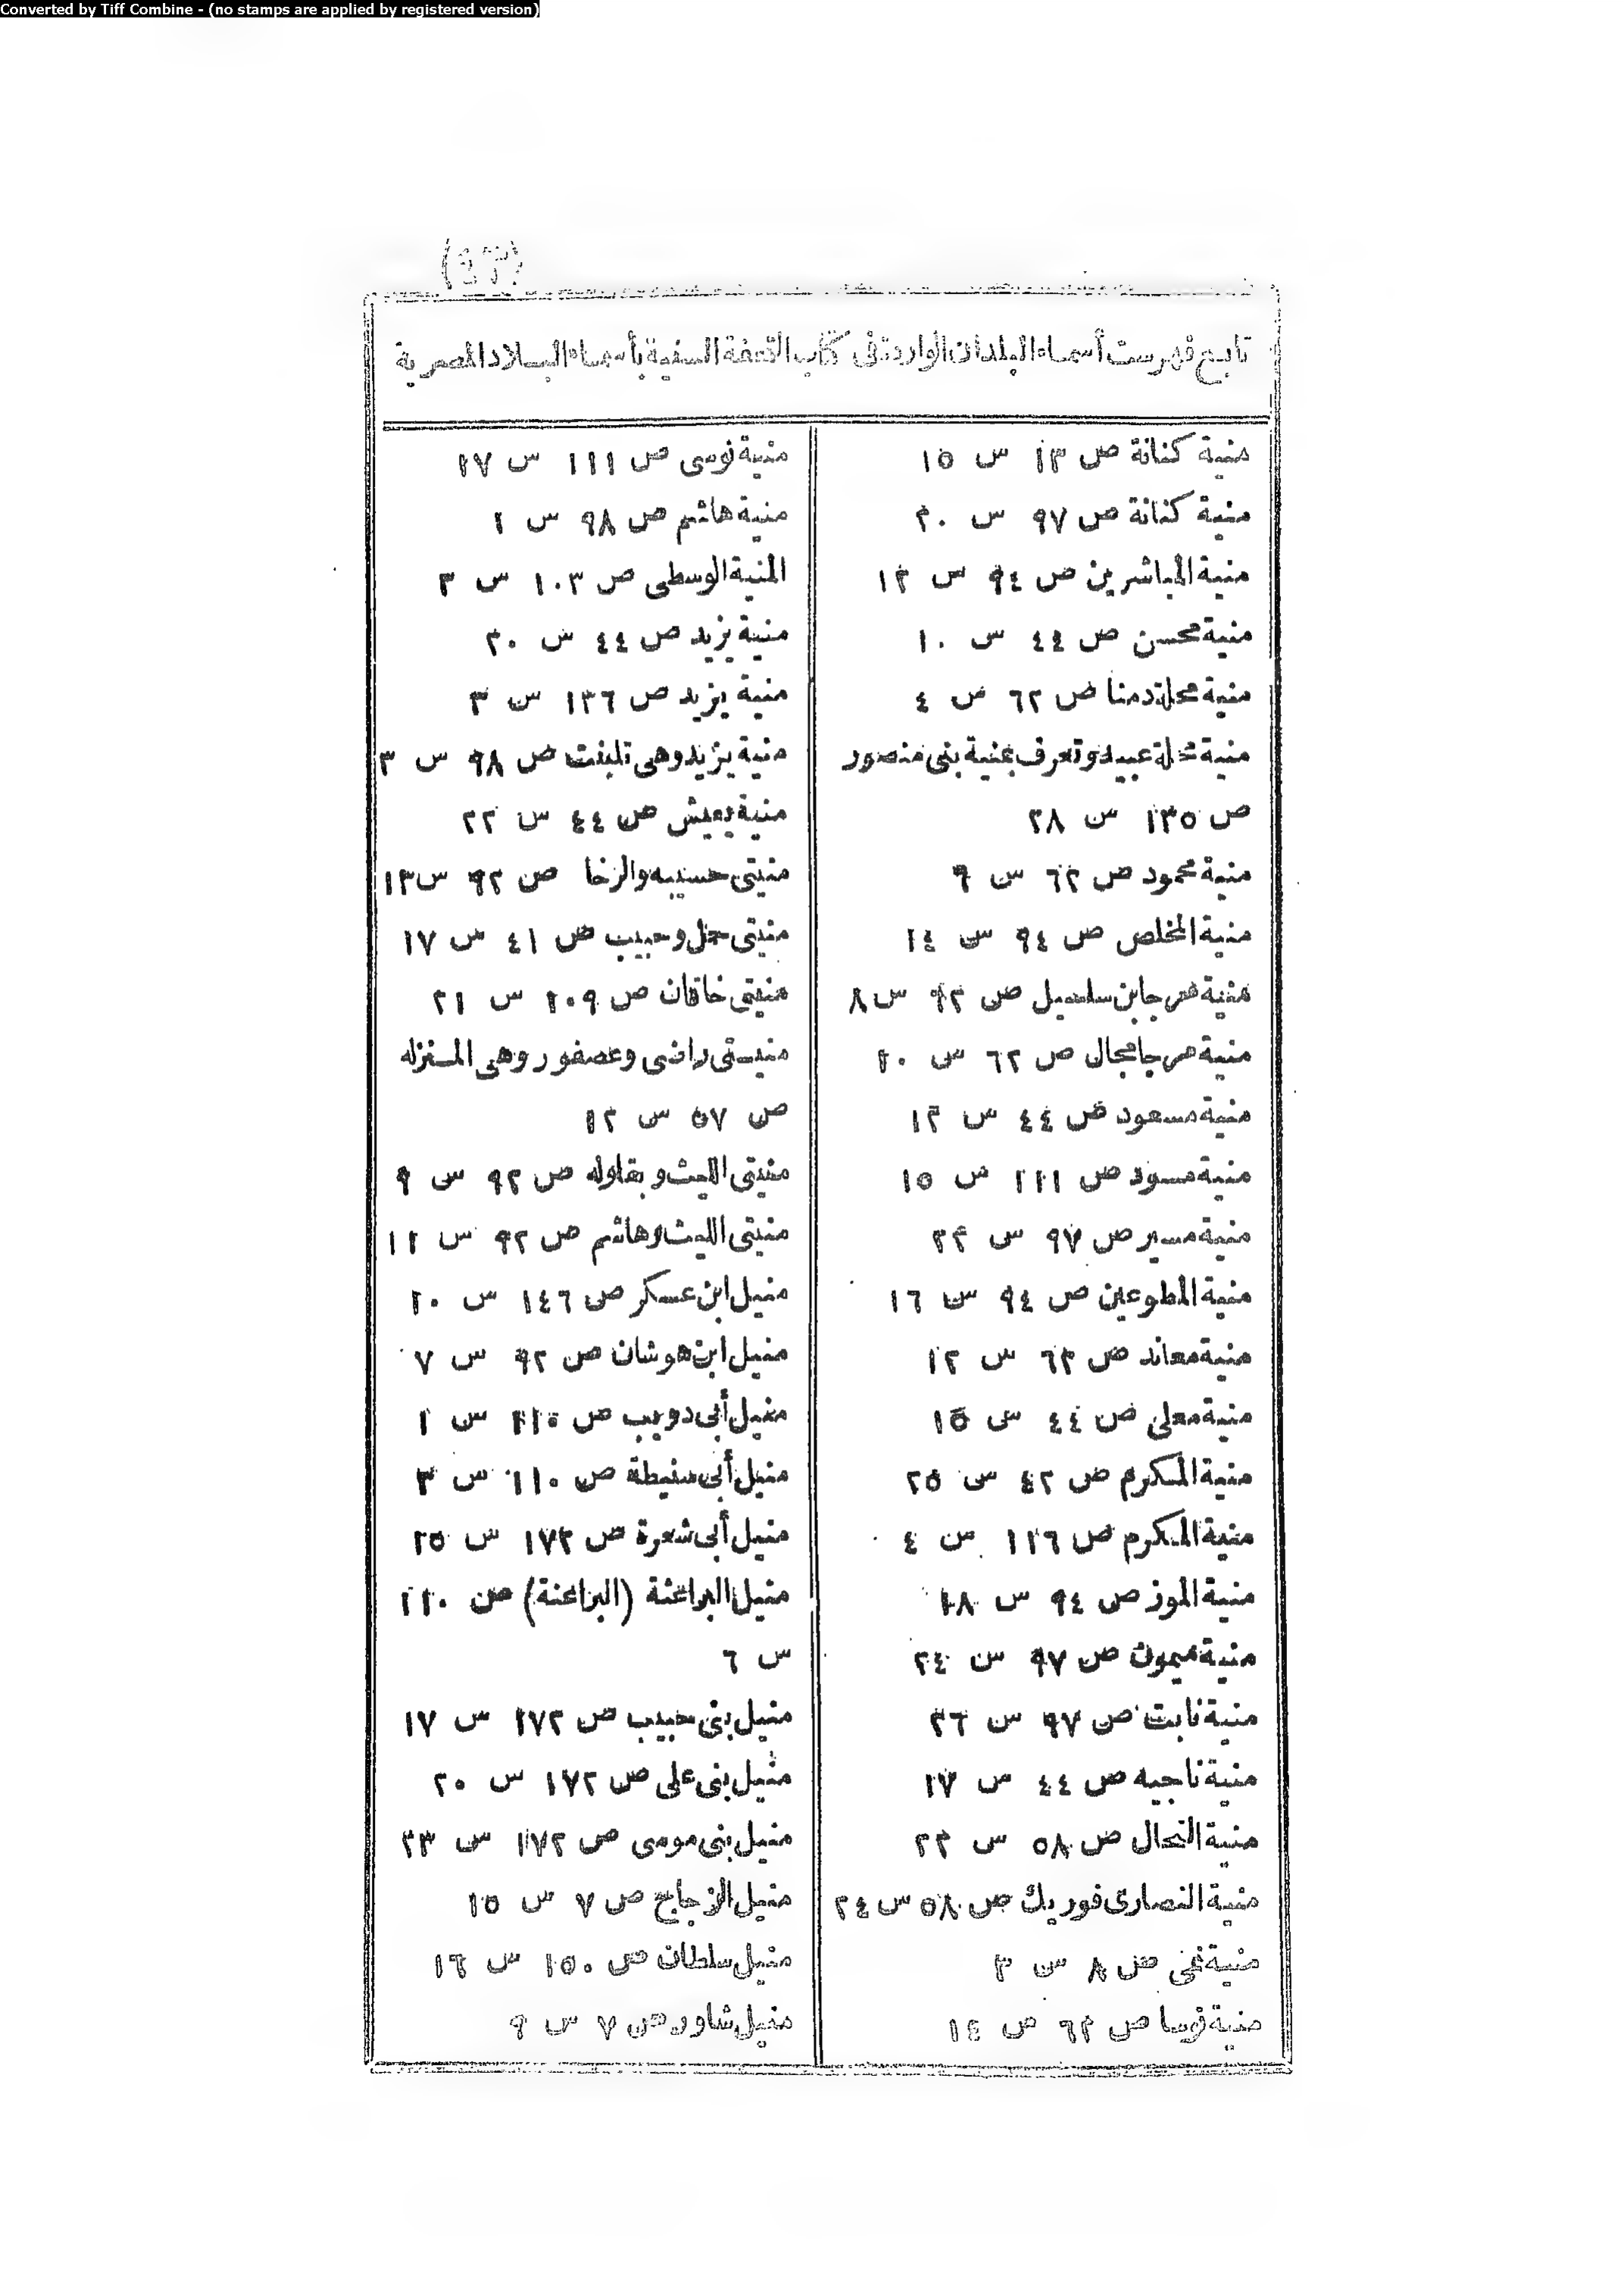 Converted by Tiff Combine - (no stamps are applied by registered version)
(٤٣)
تابع فهرست أسماء البلدان الواردة فى كتاب التحفة السنية بأسماء البلاد المصرية
منية كنانة ص ١٣ س ١٥
منية كنانة ص ٩٧ س ٢٠
منية المباشرين ص ٩٤ س ١٢
منية محسن ص ٤٤ س ١٠
منية محلة دمنا ص ٦٢ س ٤
منية محلة عبيد وتعرف بمنية بنى منصور
ص ١٣٥ س ٢٨
منية محمود ص ٦٢ س ٩
منية المخلص ص ٩٤ س ١٤
منية مرجا بن سلسيل ص ٩٢ س ٨
منية مرجا مجال ص ٦٢ س ١٠
منية مسعود ص ٤٤ س ١٢
منية مسود ص ١١١ س ١٥
منية مسير ص ٩٧ س ٢٢
منية المطوعين ص ٩٤ س ١٦
منية معاند ص ٦٢ س ١٢
منية معلى ص ٤٤ س ١٥
منية المكرم ص ٤٢ س ٢٥
منية المكرم ص ١١٦ س ٤
منية الموز ص ٩٤ س ١٨
منية ميمون ص ٩٧ س ٢٤
منية نابت ص ٩٧ س ٢٦
منية ناجيه ص ٤٤ س ١٧
منية النحال ص ٥٨ س ٢٢
منية النصارى فوريك ص ٥٨ س ٢٤
منية نمى ص ٨ س ٣
منية نوسا ص ٦٢ س ١٤
منية نوسى ص ١١١ س ١٧
منية هاشم ص ٩٨ س ١
المنية الوسطى ص ١٠٣ س ٣
منية يزيد ص ٤٤ س ٢٠
منية يزيد ص ١٣٦ س ٣
منية يزيد وهى تلبنت ص ٩٨ س ٣
منية يعيش ص ٤٤ س ٢٢
منيتى حسيبه والرخا ص ٩٢ س ١٣
منيتى حمل وحبيب ص ٤١ س ١٧
منيتى خاقان ص ١٠٩ س ٢١
منيتى راضى وعصفور وهى المنزله
ص ٥٧ س ١٢
منيتى الليث وبقاوله ص ٩٢ س ٩
منيتى الليث وهاشم ص ٩٢ س ١١
منيل ابن عسكر ص ١٤٦ س ١٠
منيل ابن هوشان ص ٩٢ س ٧
منيل أبى دويب ص ١١٠ س ١
منيل أبى سنيطة ص ١١٠ س ٣
منيل أبى شعرة ص ١٧٢ س ١٥
منيل البراغثة (البراغتة) ص ١١٠
س ٦
منيل بنى حبيب ص ١٧٢ س ١٧
منيل بنى على ص ١٧٢ س ٢٠
منيل بنى موسى ص ١٧٢ س ٢٣
منيل الزجاج ص ٧ س ١٥
منيل سلطان ص ١٥٠ س ١٦
منيل شاور ص ٧ س ٩